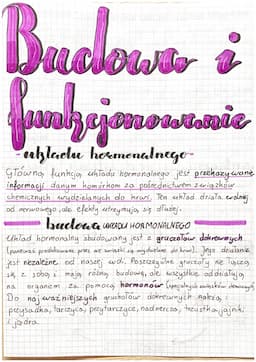 Budowa i
funkcjonowanie
układu hormonalnego
Główną funkcją układu hormonalnego jest przekazywanie
informacji danym komórkom za pośrednictwem związków
chemicznych wydzielanych do krwi. Ten układ działa wolniej
od nerwowego, ale efekty utrzymują się dłużej.
budowa UKŁADU HORMONALNEGO
Układ hormonalny zbudowany jest z gruczołów dokrewnych
(ponieważ produkowane przez nie związki są wydzielane do krwi). Jego działanie
jest niezależne od naszej woli. Poszczególne gruczoły nie łączą
się z sobą i mają różną budowę, ale wszystkie oddziałują
na organizm za pomocą hormonów
Do najważniejszych gruczołów dokrewnych należą:
przysadka, tarczyca, przytarczyce, nadnercza, trzustka, jajniki
i jądra.